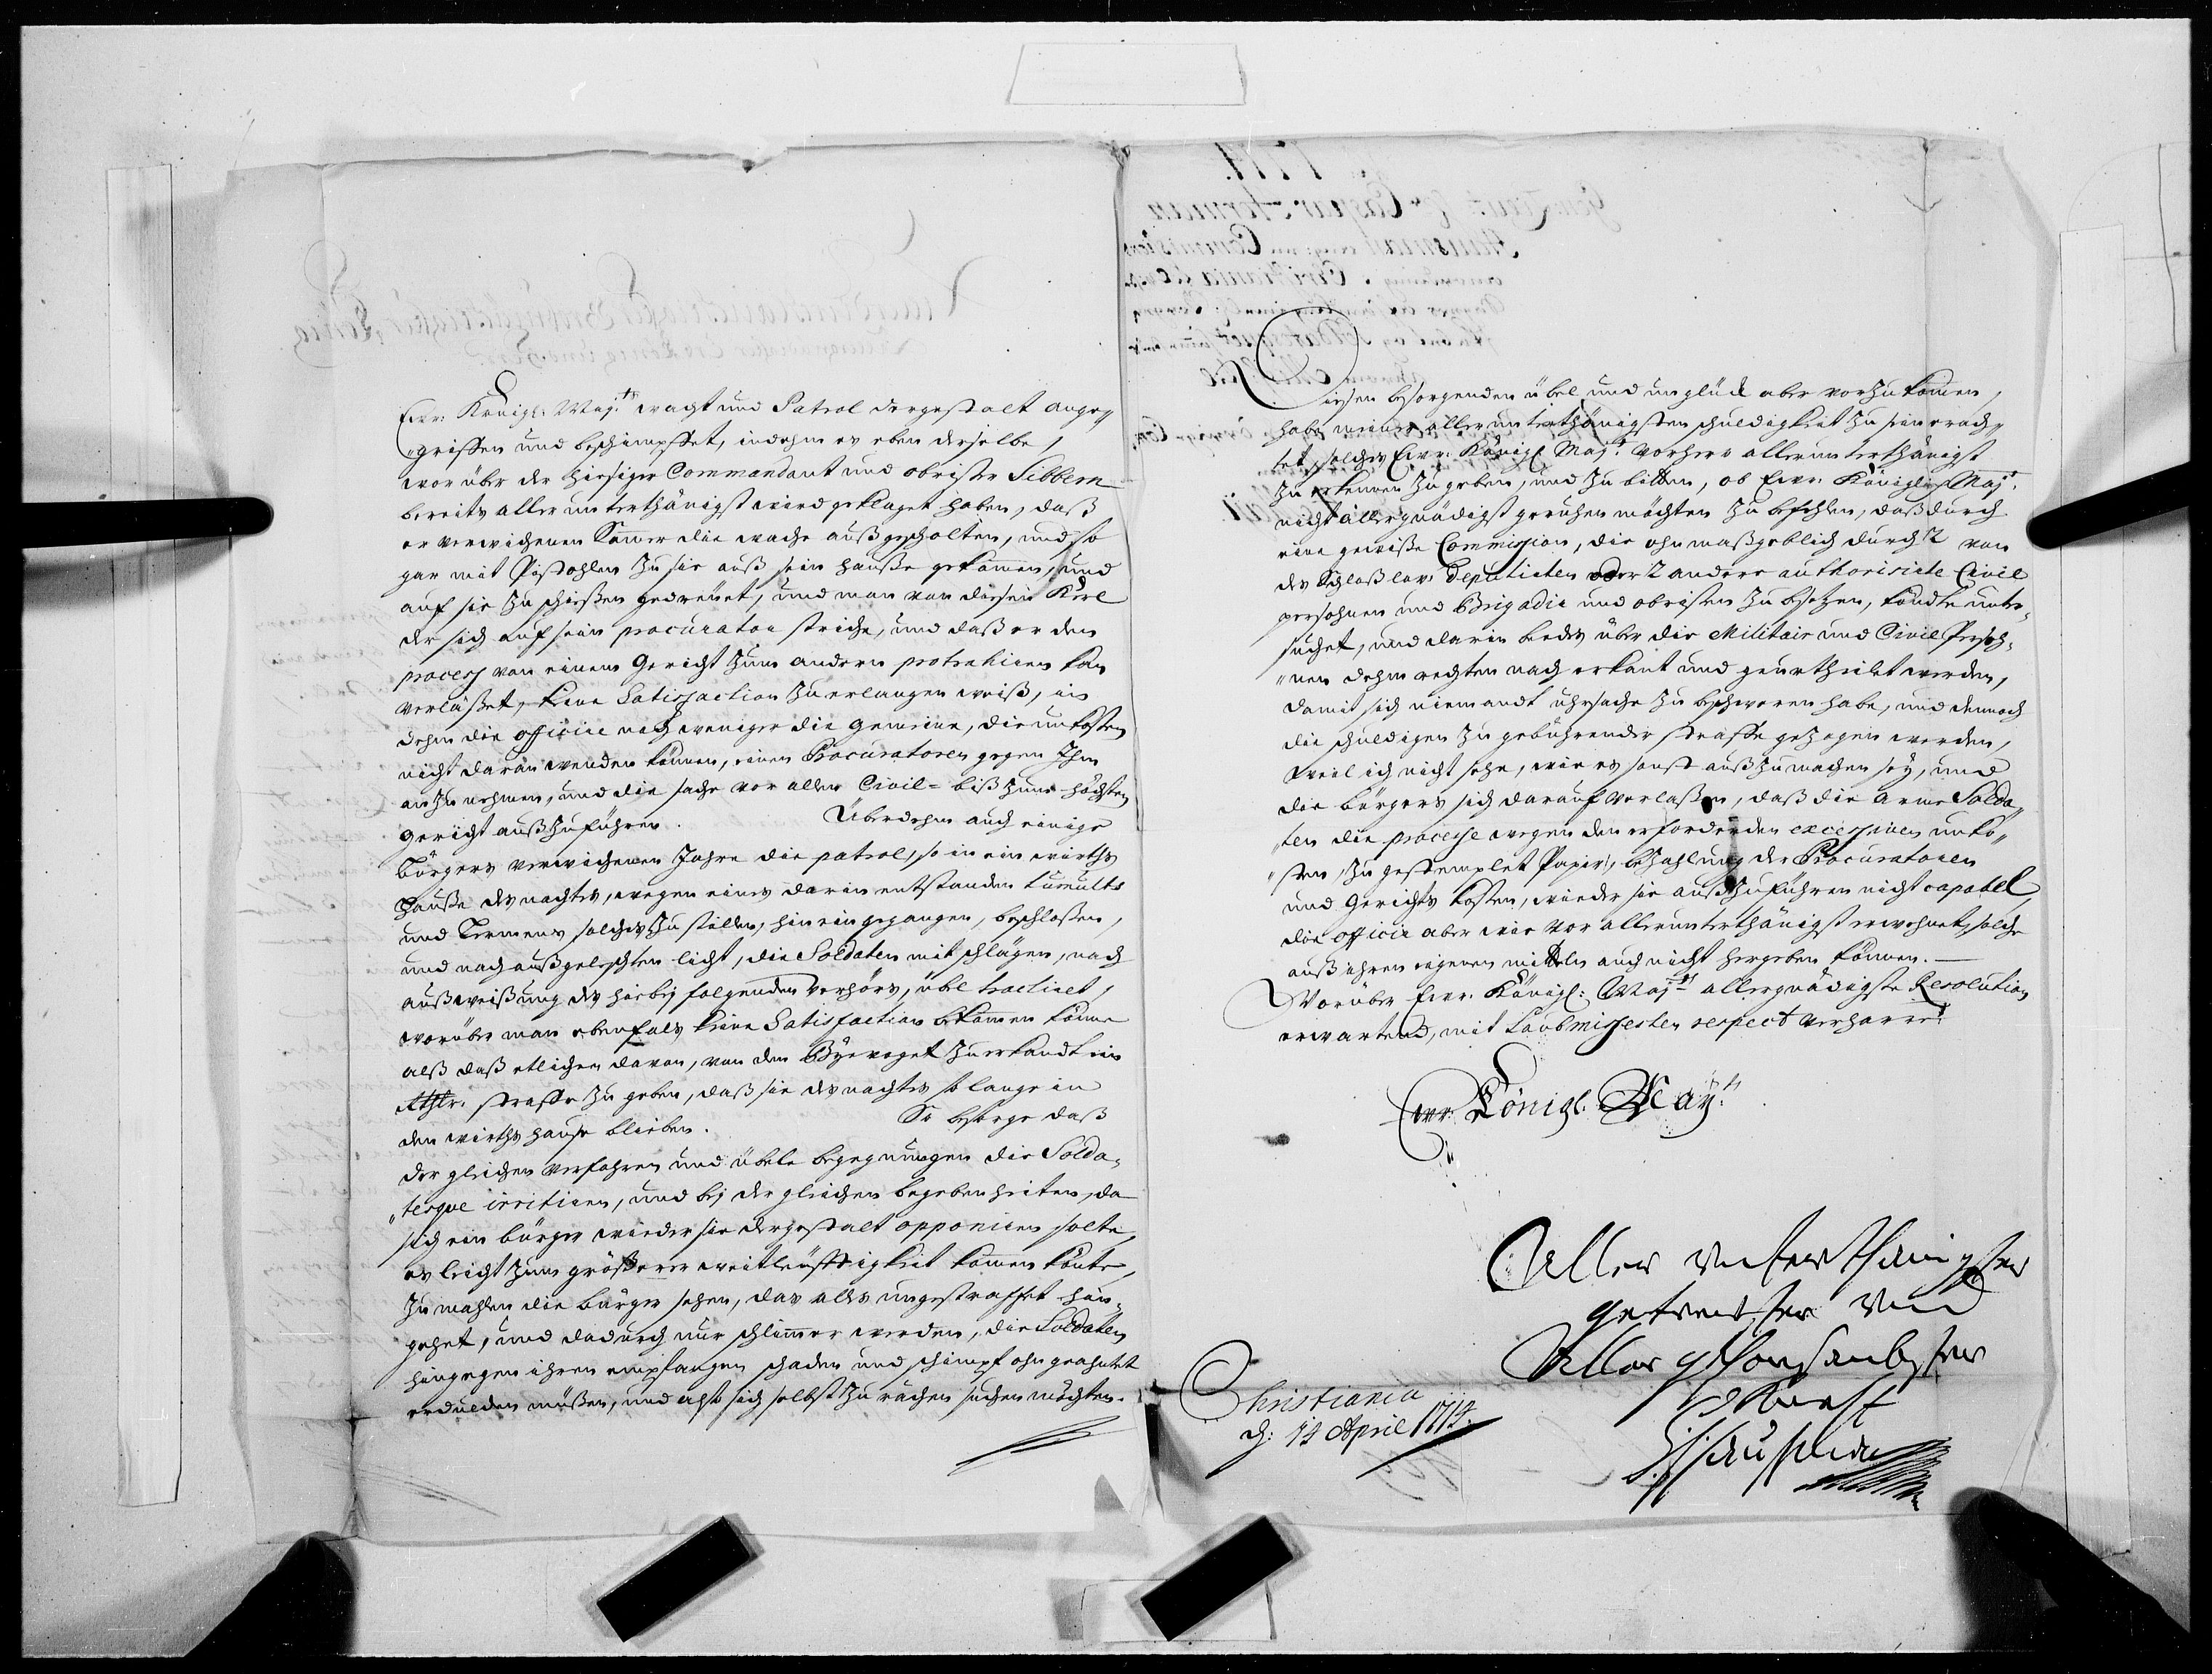 Ewr: Königl: Maj:ts wacht und Patrol dergestalt ange„
„griffen und beschimpffet, indehm es eben derselbe,
worüber der hiesiger Commandant und obrister Sibbern
bereits allerunterthänigst wird geklaget haben, daß
er verwichenen Somer die wache außgescholten, und so
gar mit Pistohlen zu sie auß sein hauße gekomen, und
auf sie zu schießen gedreuet, und man von diesen Kerl
der sich auf sein procurator striche, und daß er den
process von einem Gericht zum andern protrahiren kan
verläßet, keine Satisfaction zu erlangen weiß, in
dehm die officire noch weniger die gemeine, die unkosten
nicht daran wenden können, einen Procuratoren gegen Ihm
anzunehmen, und die sache vor allen Civil- biß zum höchsten
gericht außzuführen. Überdehm auch einige
bürgers verwichenen Jahre die patrol, so in ein wirths
hauße des nachtes, wegen eines darin entstanden tumults
und Lermens solches zu stillen, hineingegangen, beschloßen,
und nach außgeleschten licht, die Soldaten mit schlägen, nach
außweißung des hiebej folgenden verhörs, übel tractiret,
worüber man ebenfals keine Satisfaction bekomen könne
alß daß etlichen davon, von den Byevoget zuerkandt ein
Rthlr. straffe zu geben, daß sie des nachtes so lange in
den wirths hause blieben. So besorge daß
der gleichen verfahren und übele begegnungen die Solda„
„tesque irritiren, und bej der gleichen begebenheiten, da
sich ein bürger wieder sie dergestalt opponiren solte,
es leicht zum größerer weitleüfftigkeit komen könte,
zumahlen die bürger sehen, das alles ungestraffet hin„
gehet, und dadurch nur schlimer werden, die Soldaten
hingegen ihren empfangen schaden und schimpf ohn geahntet
erdulden müßen, und also sich selbst zu rächen suchen möchten.
Diesen besorgenden übel und unglück aber vorzukomen,
habe meiner allerunterthänigsten schuldigkeit zu sein erach„
tet, solches Ewr: Königl Maj:t vorhero allerunterthänigst
zu erkennen zu geben, und zu bitten, ob Ewr: Königlich Maj:
nicht allergnädigst geruhen möchten zu befehlen, daß durch
eine gewiße Commission, die ohnmaßgeblich durch 2 von
des Schloßlov: deputirten oder 2 andere authorisirte Civil
persohnen und Brigadir und obristen zu besetzen, köndte unter„
suchet, und darin beedes über die Militair und Civil Persoh„
„nen dehm rechten nach erkant und geurtheilet werden,
damit sich niemandt uhrsache zu beschweren habe, und dennoch
die schuldigen zu gebührender straffe gezogen werden,
weil ich nicht sehe, wie es sonst außzumachen sey, und
die bürgers sich darauf verlaßen, daß die arme Solda„
„ten die processe wegen den erforderden excessiven unko„
„sten zu gestempelt Papir, bezahlung der Procuratoren
und Gerichts kosten, wieder sie außzuführen nicht capabel,
die officir aber wie vor allerunterthänigst erwehnet, solche
auß ihren eigenen mitteln auch nicht hergeben können.
Vorüber Ewr: Königl: Maj:ts allergnädigste Resolution
erwartend, mit Soubmissesten respect verharre:
Ewr: Königl: May:ts
Aller unterthänigster
getreuster und
Aller gehorsambster
Knecht
Christiania
d: 14 April 1714.